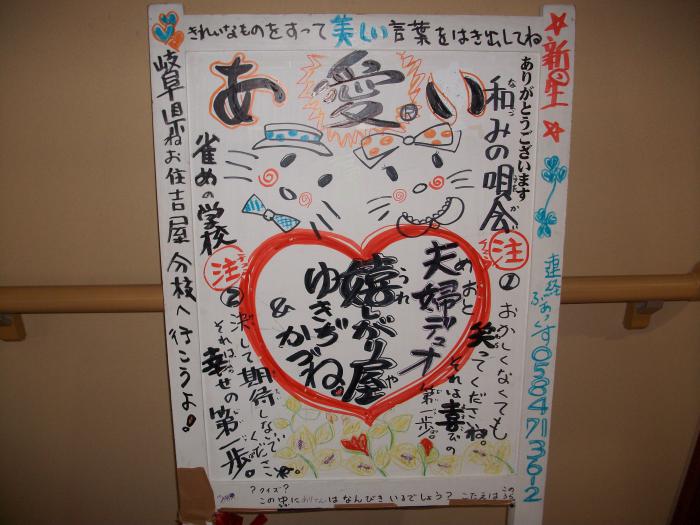 きれいなものをすって美しい言葉をはき出してね
新の生
ありがとうございます
和みの唄会
なごみのうたかい
あ愛い
雀めの学校
岐阜県ねお住吉屋分校へ行こうよ!
夫婦デュオ
めおと
嬉しがり屋
うれ や
ゆきぢ
&かずね。
注①おかしくなくても
笑ってくださいね。
それは喜びの
第一歩。
注②決して期待しないでください。
それは、幸せの第一歩。
連絡
0584 71 36-2
?クイズ?
この中にありさんはなんびきいるでしょう?こたえはこのうら